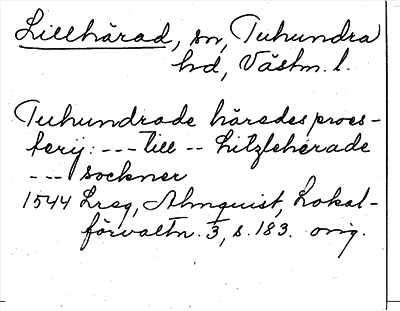 Lillhärad, sn, Tuhundra
hd, Västm. l.
Tuhundrade häredes proes-
terij: --- till -- Litzleherade
--- sockner
1544 Lrsg, Almquist, Lokal-
förvaltn. 3, s. 183. orig.